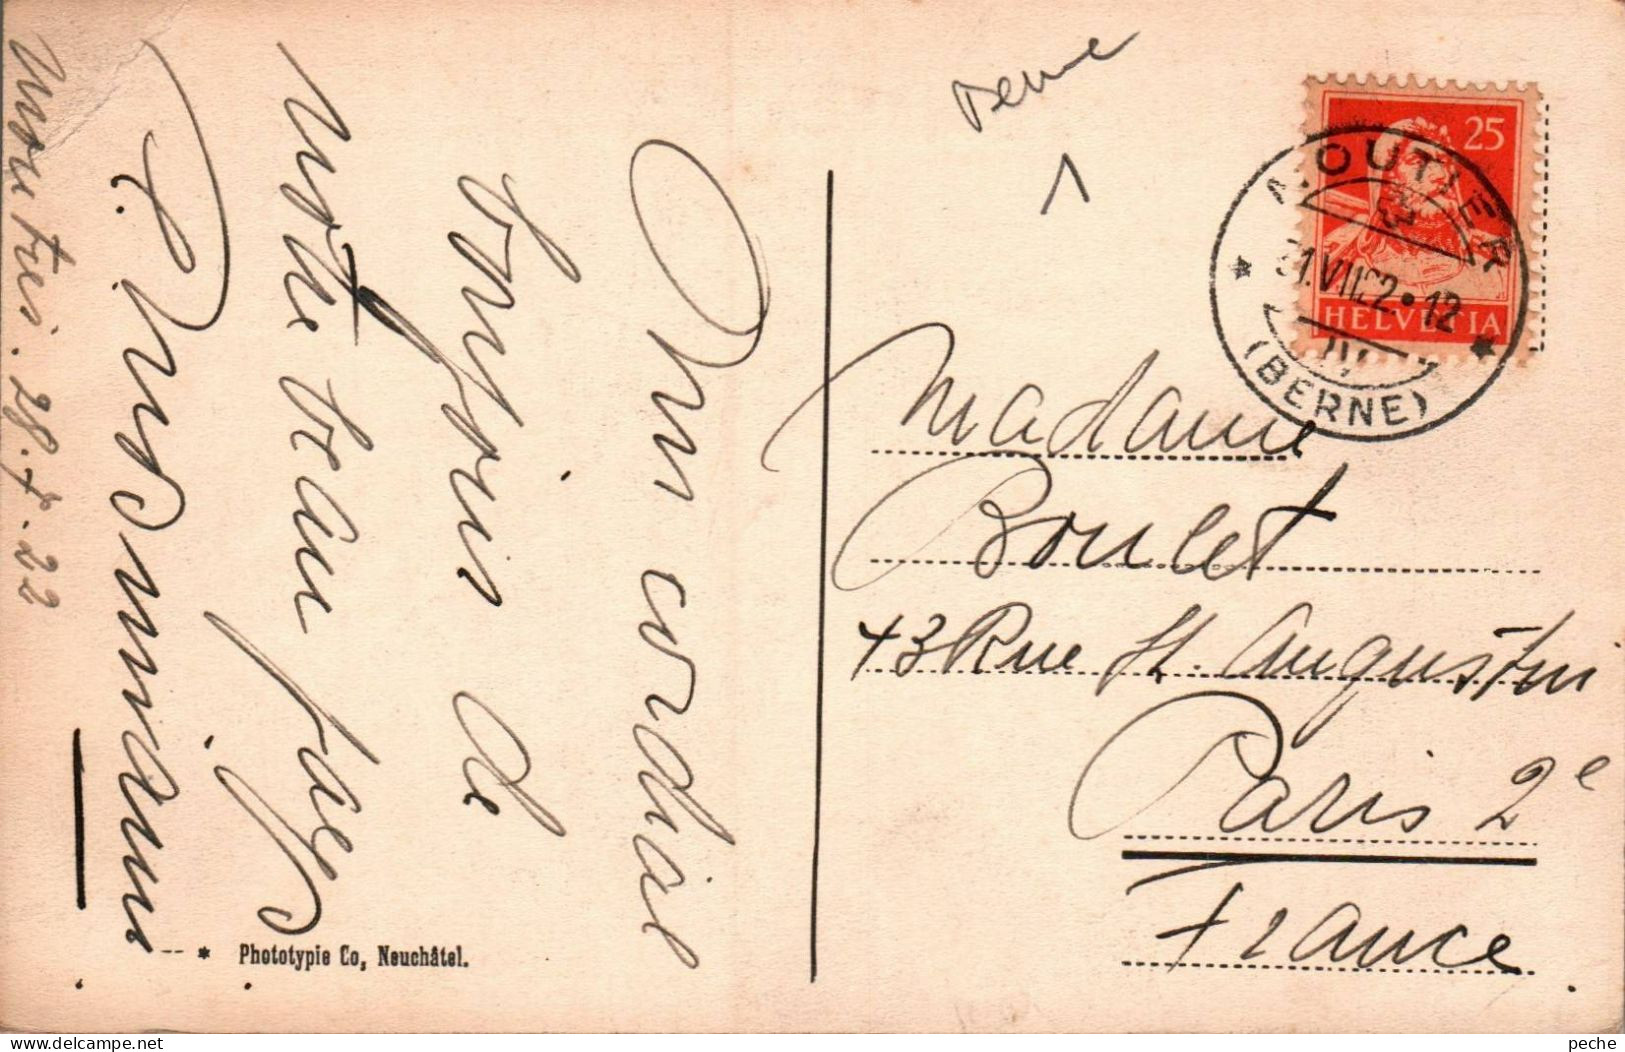 Moutier. 28.7.22
Un cordial
bonjour de
notre beau pays
Berne
1
25
HELVETIA
MOUTIER
31.VII.22•12
(BERNE)
Madame
Boulet
43 Rue St. Augustin
Paris 2e
France
Phototypie Co, Neuchâtel.
peche